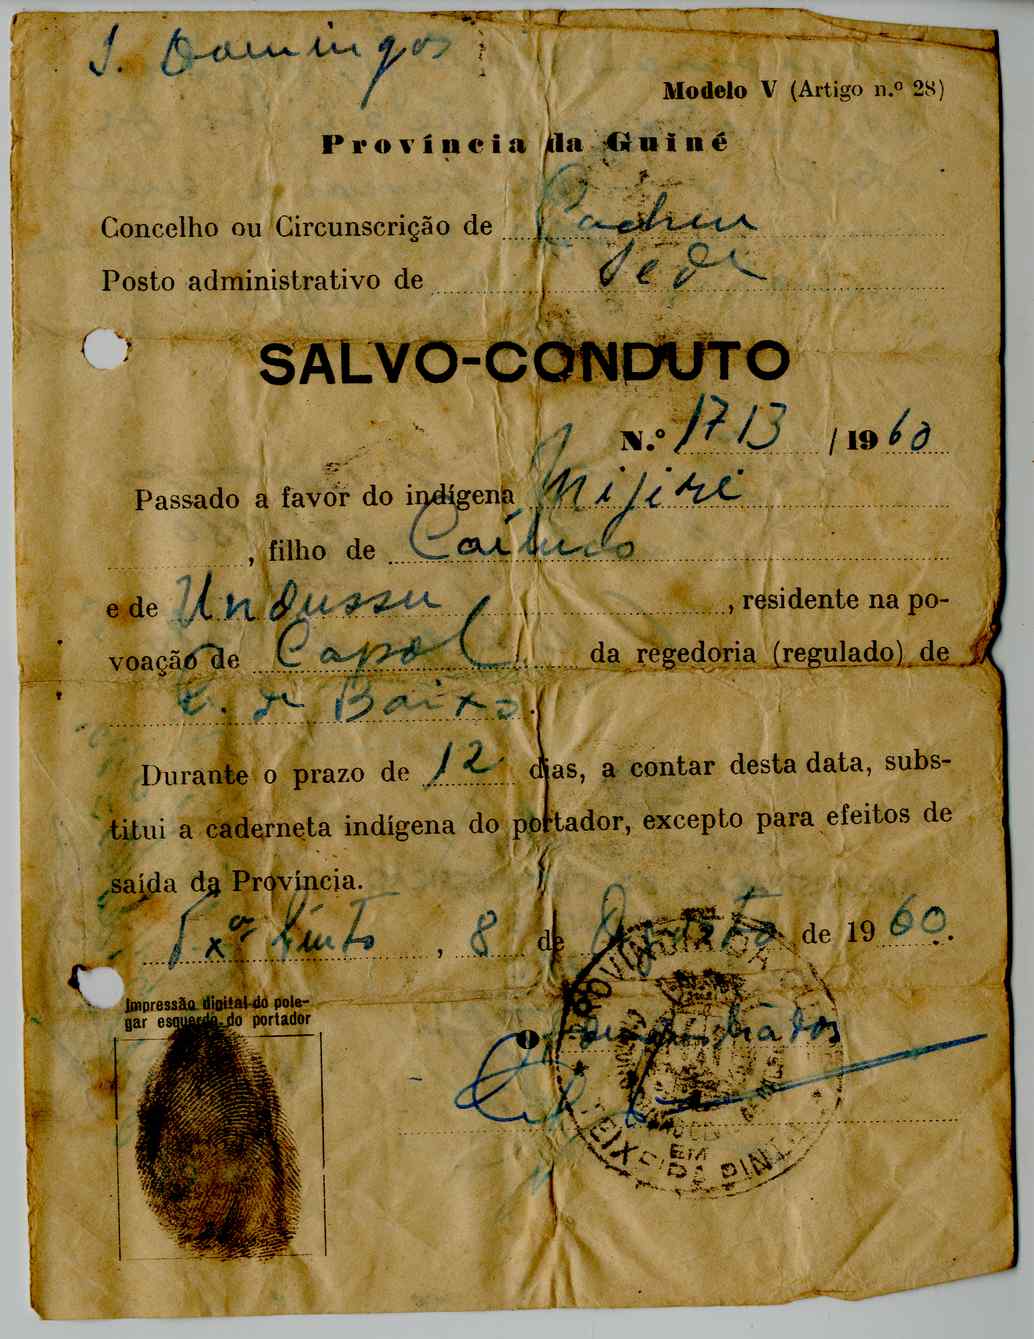 S. Domingos
Modelo V (Artigo n.º 28)
Província da Guiné
Concelho ou Circunscrição de Cacheu
Posto administrativo de Séde
SALVO-CONDUTO
N.º 1713 /1960
Passado a favor do indígena
, filho de
e de Undussu, residente na po-
voação de Capol da regedoria (regulado) de
C. de Baixo.
Durante o prazo de 12 dias, a contar desta data, subs-
titui a caderneta indígena do portador, excepto para efeitos de
saída da Província.
Txª Pinto, 8 de Agosto de 1960.
Impressão digital do pole-
gar esquerdo do portador
O
PROVINCIA DA
EM
TEIXEIRA PINTO